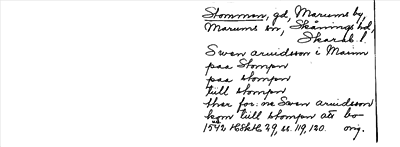 Stommen, gd, Marums by,
Marums sn, Skånings hd,
Skarab. l.
Swen aruidsson i Marim
paa Stompn
paa stompn
tiill stompn
ther for: ne Swen aruidsson
kom tiill stompn att bo
1542 HSkH 29, ss. 119, 120. orig.